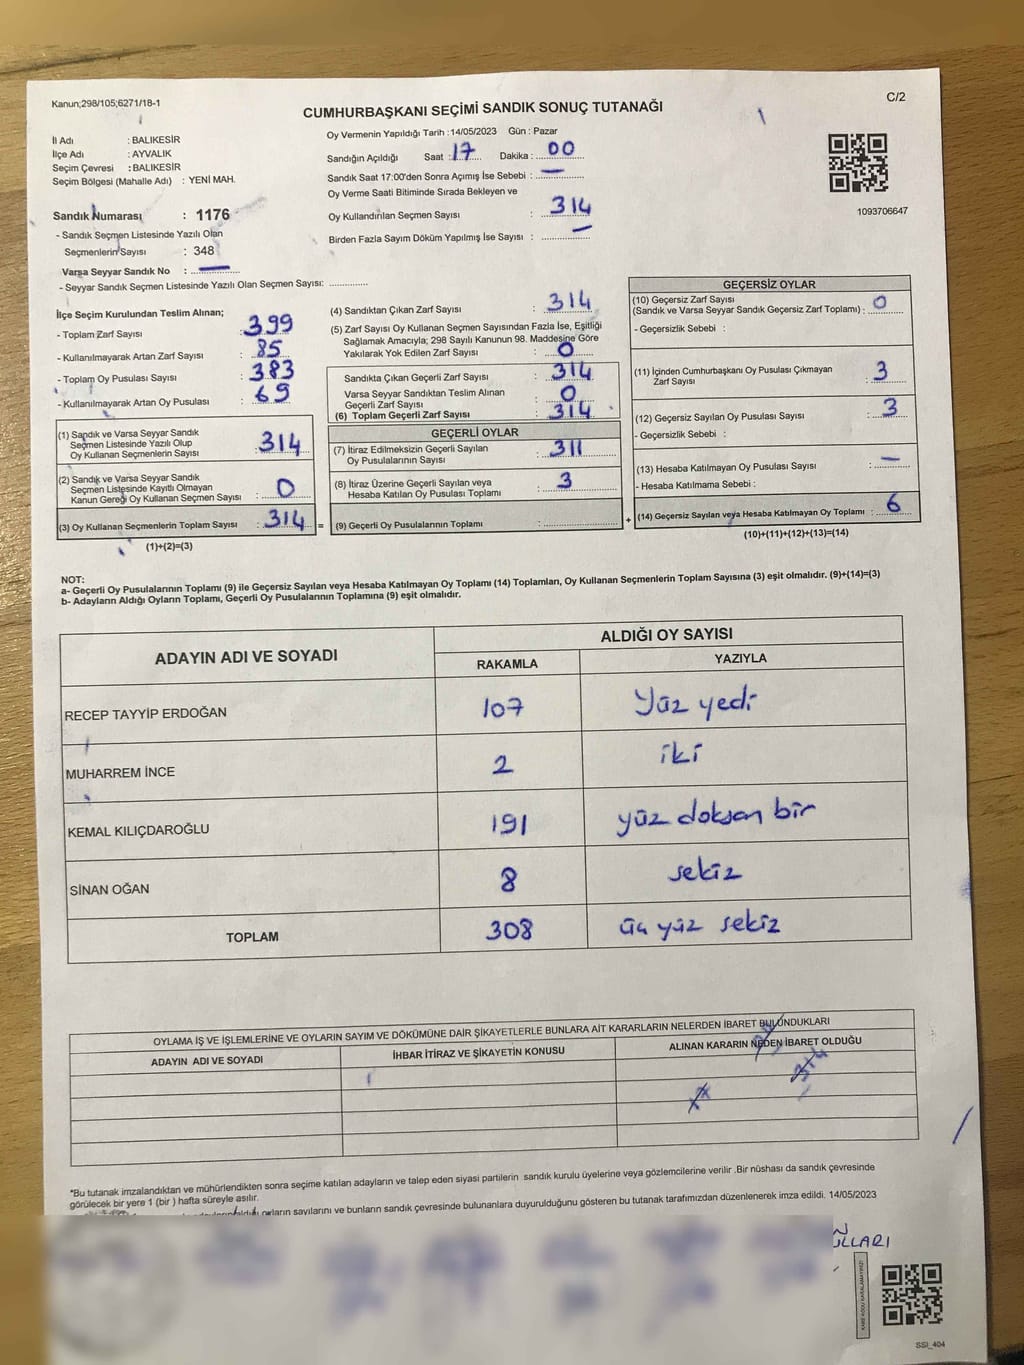 Kanun;298/105;6271/18-1
C/2
CUMHURBAŞKANI SEÇİMİ SANDIK SONUÇ TUTANAĞI
İl Adı : BALIKESİR
İlçe Adı : AYVALIK
Seçim Çevresi : BALIKESİR
Seçim Bölgesi (Mahalle Adı) : YENİ MAH.
Sandık Numarası : 1176
- Sandık Seçmen Listesinde Yazılı Olan
Seçmenlerin Sayısı : 348
Varsa Seyyar Sandık No : —
- Seyyar Sandık Seçmen Listesinde Yazılı Olan Seçmen Sayısı: ..............
Oy Vermenin Yapıldığı Tarih : 14/05/2023 Gün : Pazar
Sandığın Açıldığı Saat : 17 Dakika : 00
Sandık Saat 17:00'den Sonra Açımış İse Sebebi : —
Oy Verme Saati Bitiminde Sırada Bekleyen ve
Oy Kullandırılan Seçmen Sayısı : 314
Birden Fazla Sayım Döküm Yapılmış İse Sayısı : —
1093706647
İlçe Seçim Kurulundan Teslim Alınan;
- Toplam Zarf Sayısı : 399
- Kullanılmayarak Artan Zarf Sayısı : 85
- Toplam Oy Pusulası Sayısı : 383
- Kullanılmayarak Artan Oy Pusulası : 69
(1) Sandık ve Varsa Seyyar Sandık
Seçmen Listesinde Yazılı Olup
Oy Kullanan Seçmenlerin Sayısı : 314
(2) Sandık ve Varsa Seyyar Sandık
Seçmen Listesinde Kayıtlı Olmayan
Kanun Gereği Oy Kullanan Seçmen Sayısı : 0
(3) Oy Kullanan Seçmenlerin Toplam Sayısı : 314 =
(1)+(2)=(3)
(4) Sandıktan Çıkan Zarf Sayısı : 314
(5) Zarf Sayısı Oy Kullanan Seçmen Sayısından Fazla İse, Eşitliği
Sağlamak Amacıyla; 298 Sayılı Kanunun 98. Maddesine Göre
Yakılarak Yok Edilen Zarf Sayısı : 0
Sandıkta Çıkan Geçerli Zarf Sayısı : 314
Varsa Seyyar Sandıktan Teslim Alınan
Geçerli Zarf Sayısı : 0
(6) Toplam Geçerli Zarf Sayısı : 314
GEÇERLİ OYLAR
(7) İtiraz Edilmeksizin Geçerli Sayılan
Oy Pusulalarının Sayısı : 311
(8) İtiraz Üzerine Geçerli Sayılan veya
Hesaba Katılan Oy Pusulası Toplamı : 3
(9) Geçerli Oy Pusulalarının Toplamı : .................... +
GEÇERSİZ OYLAR
(10) Geçersiz Zarf Sayısı
(Sandık ve Varsa Seyyar Sandık Geçersiz Zarf Toplamı) : 0
- Geçersizlik Sebebi :
(11) İçinden Cumhurbaşkanı Oy Pusulası Çıkmayan
Zarf Sayısı : 3
(12) Geçersiz Sayılan Oy Pusulası Sayısı : 3
- Geçersizlik Sebebi :
(13) Hesaba Katılmayan Oy Pusulası Sayısı : —
- Hesaba Katılmama Sebebi :
(14) Geçersiz Sayılan veya Hesaba Katılmayan Oy Toplamı : 6
(10)+(11)+(12)+(13)=(14)
NOT:
a- Geçerli Oy Pusulalarının Toplamı (9) ile Geçersiz Sayılan veya Hesaba Katılmayan Oy Toplamı (14) Toplamları, Oy Kullanan Seçmenlerin Toplam Sayısına (3) eşit olmalıdır. (9)+(14)=(3)
b- Adayların Aldığı Oyların Toplamı, Geçerli Oy Pusulalarının Toplamına (9) eşit olmalıdır.
ADAYIN ADI VE SOYADI
ALDIĞI OY SAYISI
RAKAMLA YAZIYLA
RECEP TAYYİP ERDOĞAN 107 Yüz yedi
MUHARREM İNCE 2 iki
KEMAL KILIÇDAROĞLU 191 yüz doksan bir
SİNAN OĞAN 8 sekiz
TOPLAM 308 üç yüz sekiz
OYLAMA İŞ VE İŞLEMLERİNE VE OYLARIN SAYIM VE DÖKÜMÜNE DAİR ŞİKAYETLERLE BUNLARA AİT KARARLARIN NELERDEN İBARET BULUNDUKLARI
ADAYIN ADI VE SOYADI İHBAR İTİRAZ VE ŞİKAYETİN KONUSU ALINAN KARARIN NEDEN İBARET OLDUĞU
*Bu tutanak imzalandıktan ve mühürlendikten sonra seçime katılan adayların ve talep eden siyasi partilerin sandık kurulu üyelerine veya gözlemcilerine verilir .Bir nüshası da sandık çevresinde
görülecek bir yere 1 (bir ) hafta süreyle asılır.
oyların sayılarını ve bunların sandık çevresinde bulunanlara duyurulduğunu gösteren bu tutanak tarafımızdan düzenlenerek imza edildi. 14/05/2023
SSİ_404